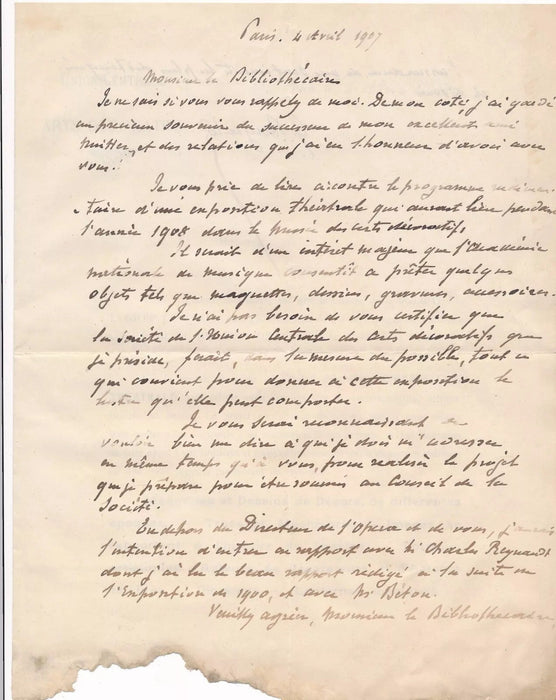 Paris. 4 Avril 1907
Monsieur le Bibliothécaire
Je ne sais si vous vous rappelez de moi. De mon coté, j'ai gardé
un précieux souvenir du successeur de mon excellent ami
Nuitter, et des relations que j'ai eu l'honneur d'avoir avec
vous.
Je vous prie de lire ci contre le programme
d'une exposition théâtrale qui aurait lieu pendant
l'année 1908 dans le Musée des Arts décoratifs
Il serait d'un intérêt majeur que l'Académie
nationale de musique consentît à prêter quelques
objets tels que maquettes, dessins, gravures, accessoires.
Je n'ai pas besoin de vous certifier que
la Société de l'Union Centrale des Arts décoratifs que
je préside, ferait, dans la mesure du possible, tout ce
qui convient pour donner à cette exposition le
lustre qu'elle peut comporter.
Je vous serai reconnaissant de
vouloir bien me dire à qui je dois m'adresser
en même temps qu'à vous, pour réaliser le projet
que je prépare pour être soumis au Conseil de la
Société.
En dehors du Directeur de l'Opéra et de vous, j'aurais
l'intention d'entrer en rapport avec M Charles Reynaud
dont j'ai lu le beau rapport rédigé à la suite de
l'Exposition de 1900, et avec Mr Béton.
Veuillez agréer, Monsieur le Bibliothécaire